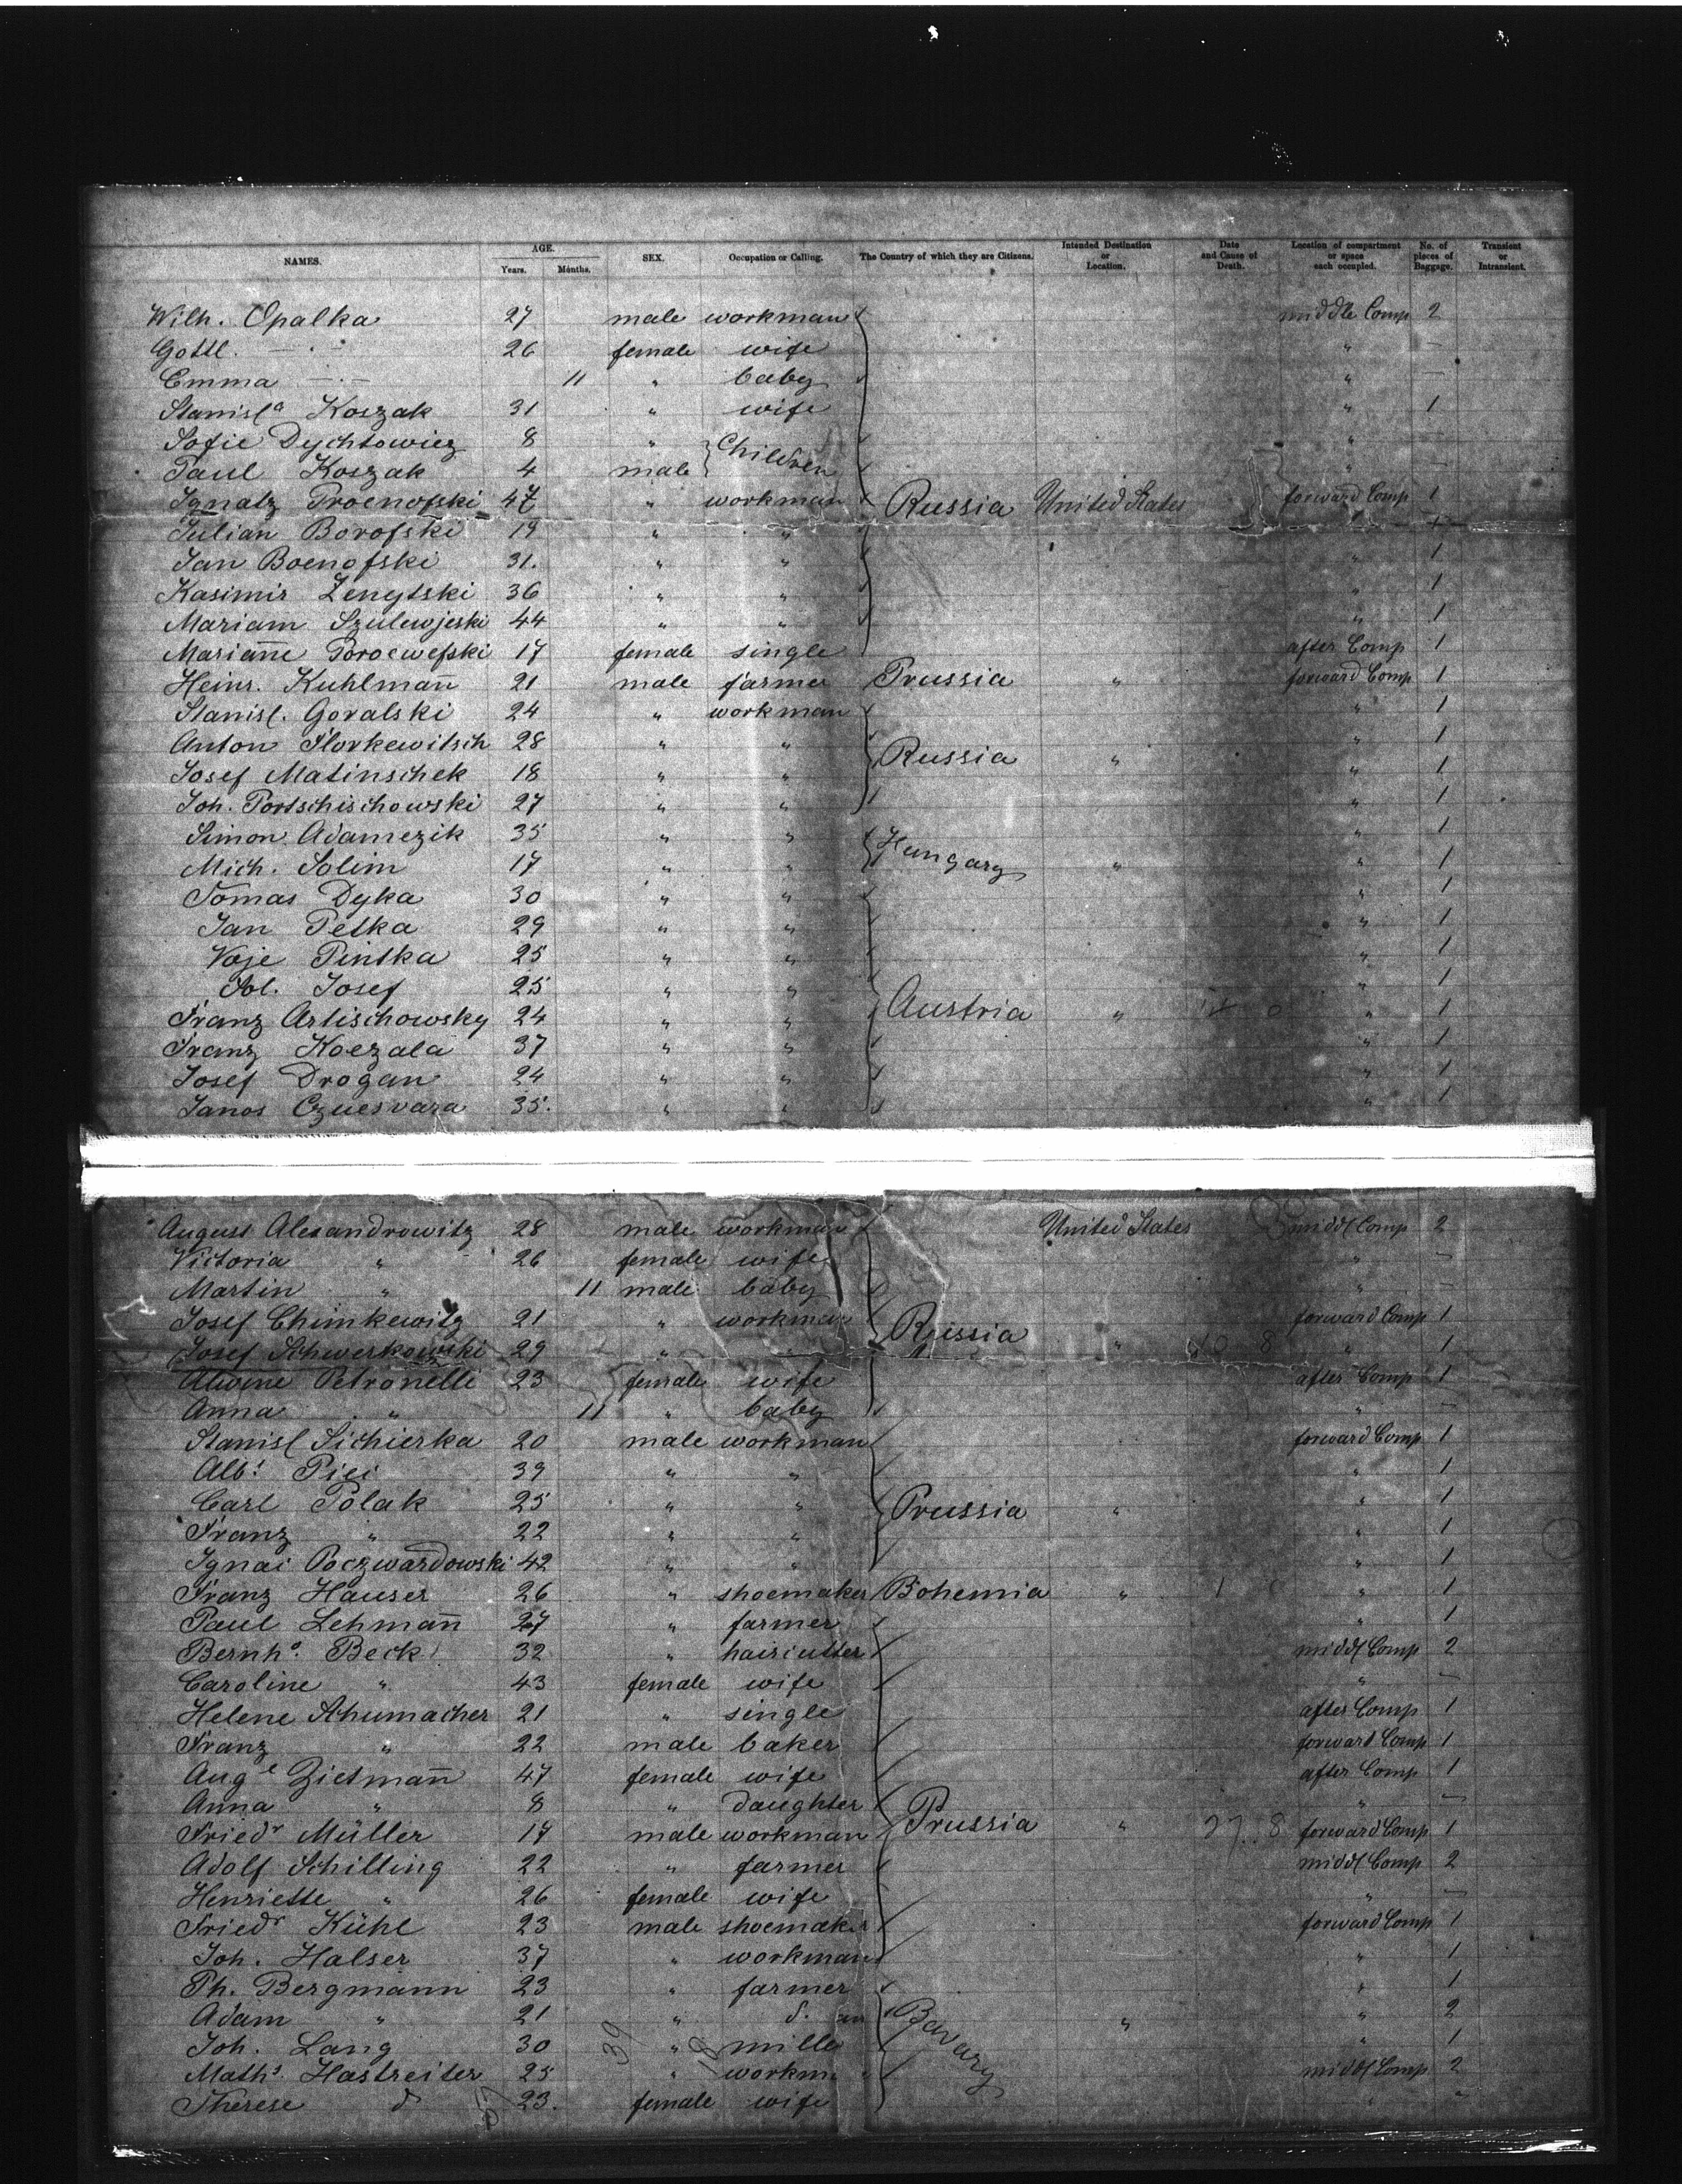 NAMES. AGE. Years. Months. SEX. Occupation or Calling. The Country of which they are Citizens. Intended Destination or Location. Date and Cause of Death. Location of compartment or space each occupied. No. of pieces of Baggage. Transient or Intransient.
Wilh. Opalka 27 male workman middle Comp 2
Gottl. — · — 26 female wife " —
Emma — · — 11 " baby " —
Stanisla Koszak 31 " wife " 1
Sofie Dychtowicz 8 " Children "
Paul Koszak 4 male " —
Ignatz Procnofski 47 " workman Russia United States forward Comp 1
Julian Borofski 19 " " " 1
Jan Boenofski 31. " " " 1
Kasimir Zenytski 36 " " " 1
Mariam Szulewjeski 44 " " " 1
Mariañe 17 female single after Comp 1
Heinr. Kuhlmañ 21 male farmer Prussia " forward Comp 1
Stanisl. Goralski 24 " workman " 1
Anton Florkewitsch 28 " " " 1
Josef Matinschek 18 " " Russia " " 1
Joh. Portschischowski 27 " " " 1
Simon Adamczik 35 " " Hungary " 1
Mich. Solim 17 " " " " 1
Tomas Dyka 30 " " " 1
Jan Petka 29 " " " 1
Voje Pintka 25 " " " 1
Sol. Josef 25 " " " 1
Franz Artischowsky 24 " " Austria " " 1
Franz Koczala 37 " " " 1
Josef Drogan 24 " " " 1
Janos Czuesvara 35. " " " 1
August Alexandrowitz 28 male workman United States middl Comp 2
Victoria " 26 female wife " —
Martin " 11 male baby " —
Josef Chimkewitz 21 " workman Russia forward Comp 1
Josef Schwerkowski 29 " " " " 1
Alwine Petronelli 23 female wife after Comp 1
Anna " 11 " baby " —
Stanisl Sichierka 20 male workman forward Comp 1
Albt. Pici 39 " " " 1
Carl Polak 25 " " Prussia " " 1
Franz " 22 " " " 1
Ignai Poczwardowski 42 " " " 1
Franz Hauser 26 " shoemaker Bohemia " " 1
Paul Lehmañ 27 " farmer " 1
Bernhd. Beck 32 " haircutter middl Comp 2
Caroline " 43 female wife " —
Helene Schumacher 21 " single after Comp 1
Franz " 22 male baker forward Comp 1
Auge Zietmañ 47 female wife after Comp 1
Anna " 8 " daughter " —
Friedr Müller 17 male workman Prussia " 27. 8 forward Comp 1
Adolf Schilling 22 " farmer middl Comp 2
Henriette " 26 female wife " —
Friedr Kühl 23 male shoemaker forward Comp 1
Joh. Halser 37 " workman " 1
Ph. Bergmann 23 " farmer " 1
Adam " 21 " Bavary " " 2
Joh. Lang 30 " miller " 1
Maths. Hastreiter 25 " workm middl Comp 2
Therese do 23. female wife " "